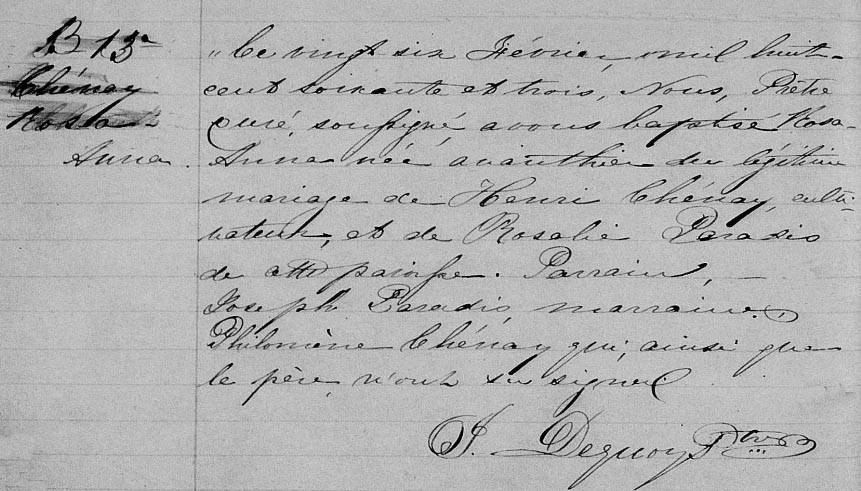 B 15
Chénay
Rosa-
Anna.
„ Ce vingt six Février, mil huit-
cent soixante et trois, Nous, Prêtre
curé, soussigné, avons baptisé Rosa-
Anna née avanthier du légitime
mariage de Henri Chénay, culti-
vateur, et de Rosalie Paradis
de cette paroisse. Parrain, –
Joseph Paradis, marraine.
Philomène Chénay qui, ainsi que
le père, n'ont su signer
J. Dequoy Ptre